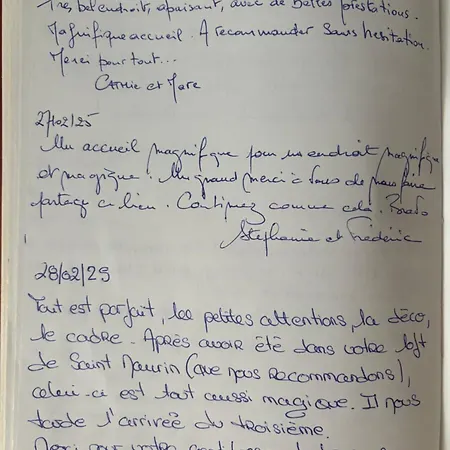 Très bel endroit, apaisant, avec de Belles prestations.
Magnifique accueil. A recommander Sans hesitation.
Merci pour tout...
CATHIE et MARC
27/02/25
Un accueil magnifique pour un endroit magnifique
et magique. Un grand merci à vous de nous faire
partager ce lieu. Continuez comme cela. Bravo
Stephanie et Frédéric
28/02/25
Tout est parfait, les petites attentions, la déco,
le cadre. Après avoir été dans votre loft
de Saint Maurin (que nous Recommandons),
celui-ci est tout aussi magique. Il nous
tarde l'arrivée du troisième.
Merci pour votre